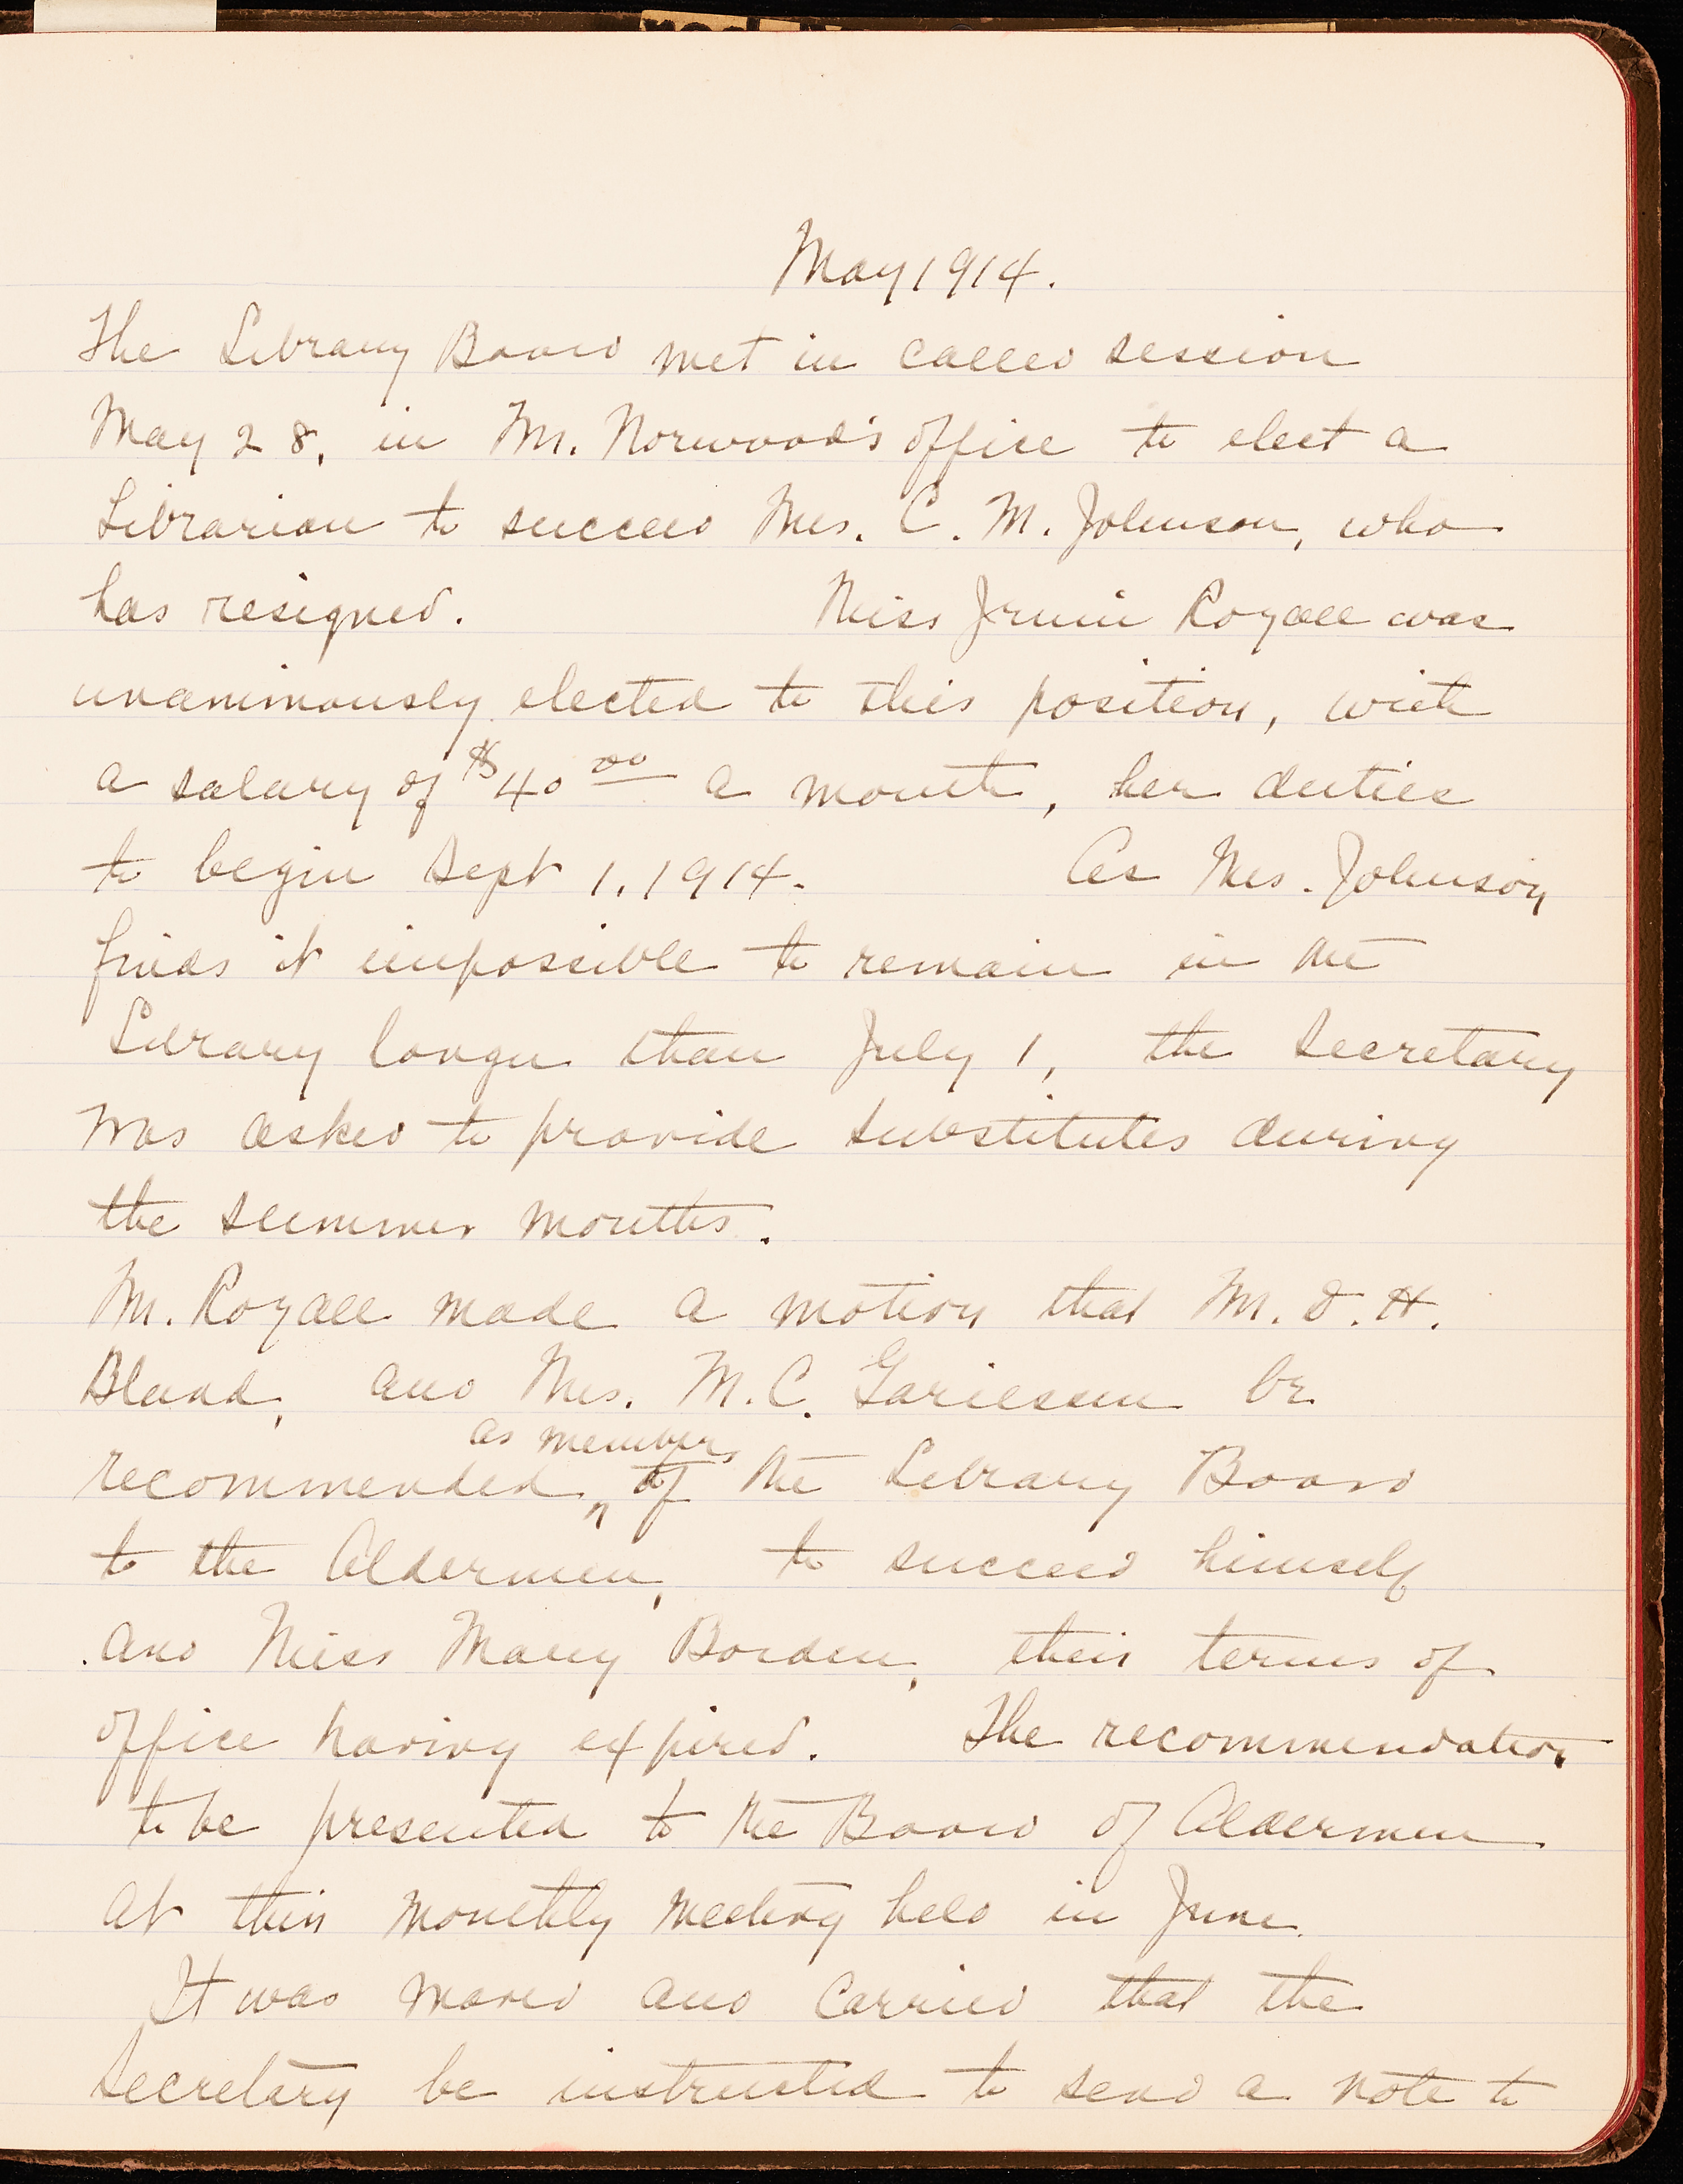 May 1914.
The Library Board met in called session
May 28, in Mr. Norwood's office to elect a
Librarian to succeed Mrs. C. M. Johnson, who
has resigned. Miss Royall was
unanimously elected to this position, with
a salary of $40 00 a month, her duties
to begin Sept 1, 1914. As Mrs. Johnson
finds it impossible to remain in the
Library longer than July 1, the Secretary
was asked to provide substitutes during
the summer months.
Mr. Royall made a motion that Mr. H.
Bland, and Mrs. M. C. be
as members
recommended ^ of the Library Board
to the Aldermen, to succeed himself
and Miss Mary Borden, their terms of
office having expired. The recommendation
to be presented to the Board of Aldermen
at their monthly meeting held in June.
It was moved and carried that the
Secretary be instructed to send a note to